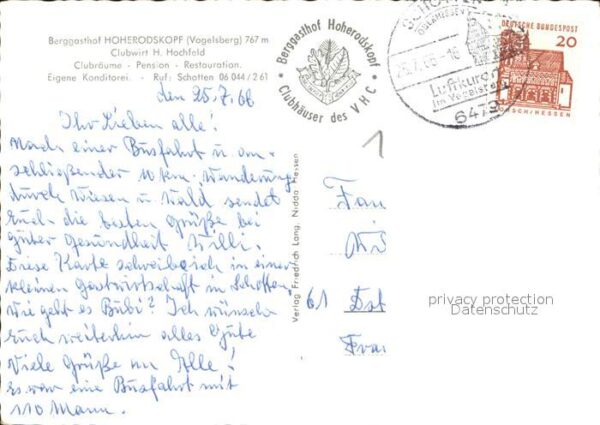 Berggasthof HOHERODSKOPF (Vogelsberg) 767 m
Clubwirt H. Hochfeld
Clubräume - Pension - Restauration.
Eigene Konditorei. - Ruf: Schotten 06 044/2 61
Berggasthof Hoherodskopf
Clubhäuser des VHC
25.7.66-16
Luftkurort
im Vogelsberg
6479
DEUTSCHE BUNDESPOST
20
LORSCH/HESSEN
den 25.7.66
Ihr Lieben alle!
Nach einer Busfahrt u. an-
schließender 10 km. Wanderung
durch Wiesen u. Wald sendet
Euch die besten Grüße bei
guter Gesundheit Willi.
Diese Karte schreibe ich in einer
kleinen Gastwirtschaft in Schotten,
wie geht es Bubi? Ich wünsche
Euch weiterhin alles Gute
Viele Grüße an Alle!
Es war eine Busfahrt mit
110 Mann.
Verlag Friedrich Lang, Nidda Hessen
1
Fam
61
privacy protection
Datenschutz